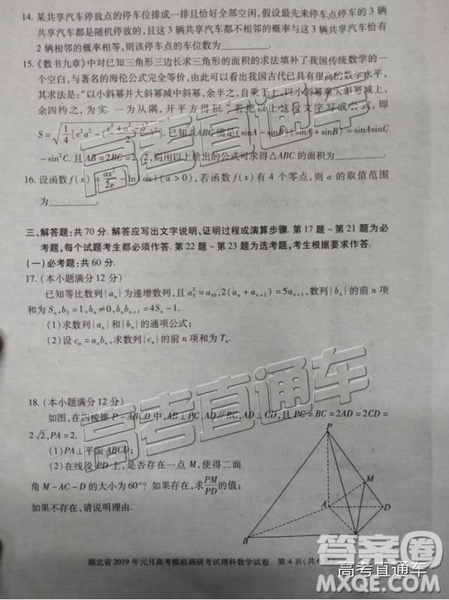 14. 某共享汽车停放点的停车位排成一排且恰好全部空闲,假设最先来停车点停车的 3 辆
共享汽车都是随机停放的,且这 3 辆共享汽车都不相邻的概率与这 3 辆共享汽车恰有
2 辆相邻的概率相等,则该停车点的车位数为
15.《数书九章》中对已知三角形三边长求三角形的面积的求法填补了我国传统数学的一
个空白,与著名的海伦公式完全等价,由此可以看出我国古代已具有很高的数学水平,
其求法是:“以小斜幂并大斜幂减中斜幂,余半之,自乘于上,以小斜幂乘大斜幂减上,
余四约之,为实.一为从隅,开平方得积.”若把以上这段文字写成公式,即
S=
已知△ABC满足(sinA-sinB)(sinA+sinB)=sinAsinC
-sin²C. 且AB=2BC=2 用以上给出的公式可求得△ABC的面积为
16. 设函数 f(x)= (a>0),若函数 f(x) 有 4 个零点,则 a 的取值范围
为
三、解答题:共 70 分. 解答应写出文字说明、证明过程或演算步骤. 第 17 题~第 21 题为必
考题,每个试题考生都必须作答. 第 22 题~第 23 题为选考题,考生根据要求作答.
(一)必考题:共 60 分.
17.(本小题满分 12 分)
已知等比数列{aₙ}为递增数列,且a₅²=a₁₀,2(aₙ+aₙ₊₂)=5aₙ₊₁,数列{bₙ}的前 n 项
和为 Sₙ,b₁=1,bₙ≠0,bₙbₙ₊₁=4Sₙ-1.
(1)求数列{aₙ}和{bₙ}的通项公式;
(2)设 cₙ=aₙbₙ,求数列{cₙ}的前 n 项和为 Tₙ.
18.(本小题满分 12 分)
如图,在四棱锥 P-ABCD 中,AB⊥PC,AD∥BC,AD⊥CD,且 PC=BC=2AD=2CD=
2√2,PA=2.
(1)PA⊥平面 ABCD;
(2)在线段 PD 上,是否存在一点 M,使得二面
角 M-AC-D 的大小为 60°?如果存在,求PM/PD的值;
如果不存在,请说明理由.
P
M
A
D
B
C
湖北省 2019 年元月高考模拟调研考试理科数学试卷 第 4 页(共
高考直通车
高考直通车
答案圈
高考直通车
MXQE.COM